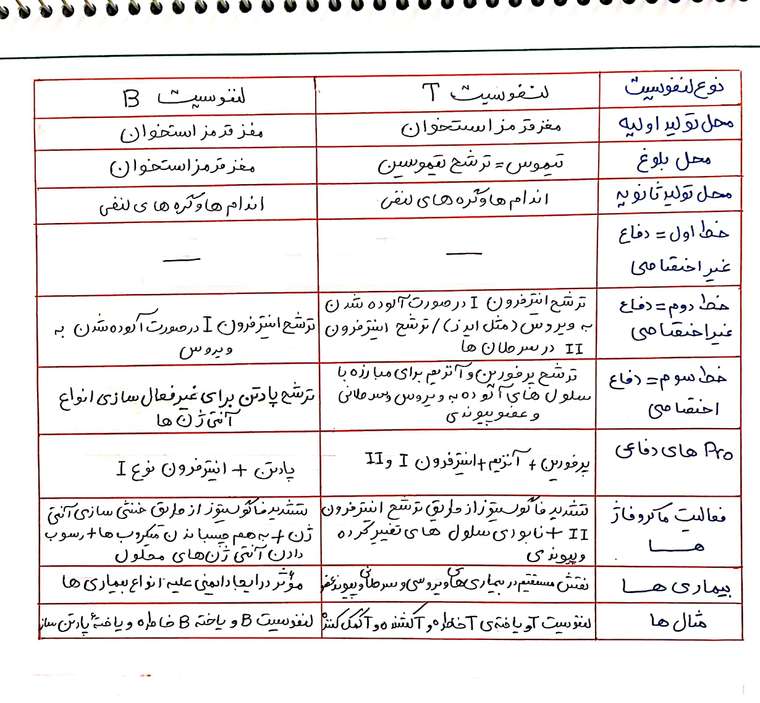 نوع لنفوسیت لنفوسیت T لنفوسیت B
محل تولید اولیه مغز قرمز استخوان مغز قرمز استخوان
محل بلوغ تیموس = ترشح تیموسین مغز قرمز استخوان
محل تولید ثانویه اندام ها و گره های لنفی اندام ها و گره های لنفی
خط اول = دفاع
غیر اختصاصی — —
خط دوم = دفاع
غیر اختصاصی
ترشح اینترفرون I در صورت آلوده شدن
به ویروس (مثل ایدز) / ترشح اینترفرون
II در سرطان ها
ترشح اینترفرون I در صورت آلوده شدن به
ویروس
خط سوم = دفاع
اختصاصی
ترشح پرفورین و آنزیم برای مبارزه با
سلول های آلوده به ویروس و سرطانی
و عضو پیوندی
ترشح پادتن برای غیر فعال سازی انواع
آنتی ژن ها
Pro های دفاعی پرفورین + آنزیم + اینترفرون I و II پادتن + اینترفرون نوع I
فعالیت ماکروفاژ
هــا
تشدید فاگوسیتوز از طریق ترشح اینترفرون
II + نابودی سلول های تغییر کرده
و پیوندی
تشدید فاگوسیتوز از طریق خنثی سازی آنتی
ژن + به هم چسباندن میکروب ها + رسوب
دادن آنتی ژن های محلول
بیماری هـا نقش مستقیم در بیماری های ویروسی و سرطانی و پیوند عضو مؤثر در ایجاد ایمنی علیه انواع بیماری ها
مثال ها لنفوسیت T و یاخته ی T خاطره و T کشنده و T کمک کننده لنفوسیت B و یاخته B خاطره و یاختهٔ پادتن ساز